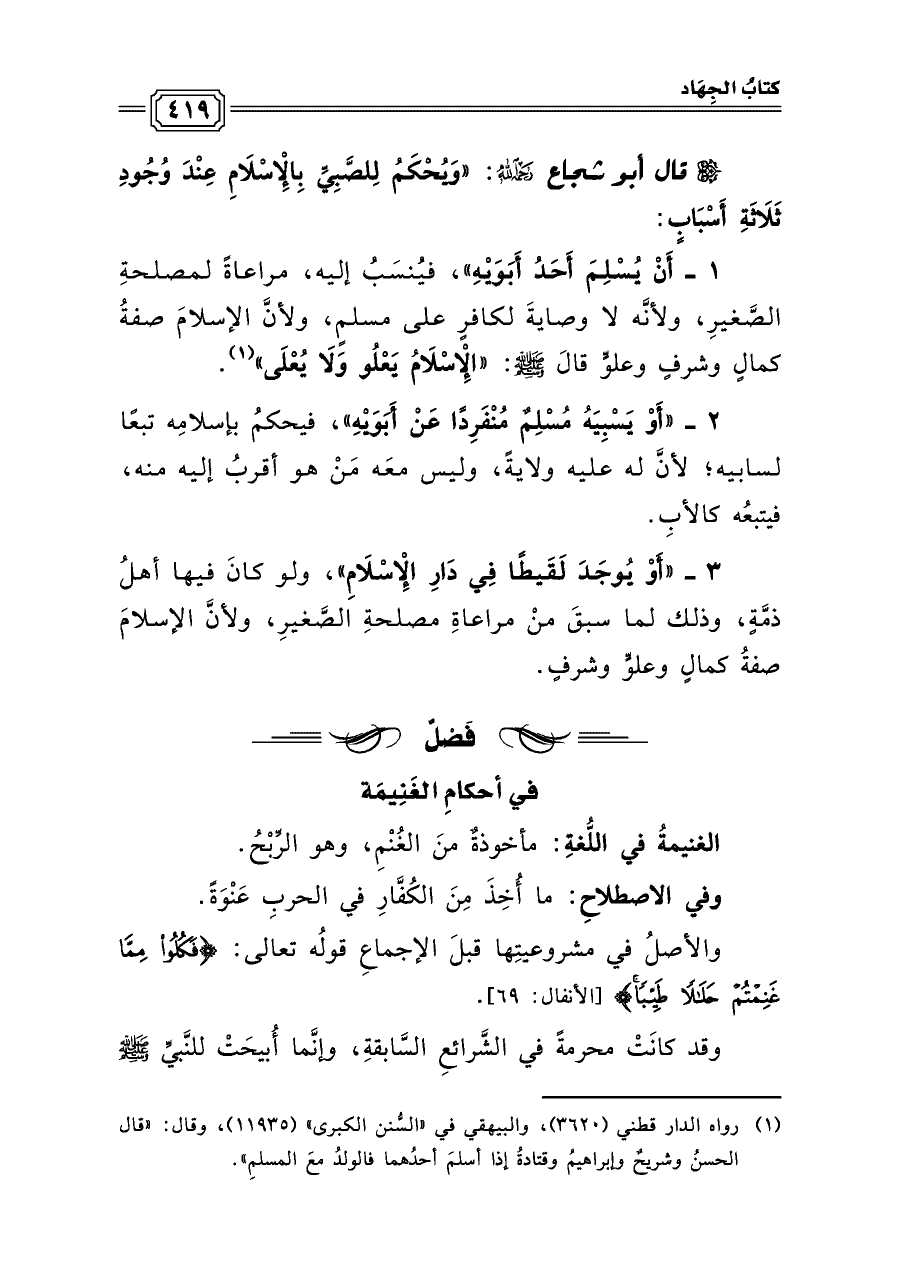 كتابُ الجِهَاد
٤١٩
قال أبو شجاع رَحِمَهُ اللهُ: «وَيُحْكَمُ لِلصَّبِيِّ بِالْإِسْلَامِ عِنْدَ وُجُودِ
ثَلَاثَةِ أَسْبَابٍ:
١ ـ أَنْ يُسْلِمَ أَحَدُ أَبَوَيْهِ»، فيُنسَبُ إليه، مراعاةً لمصلحةِ
الصَّغيرِ، ولأنَّه لا وصايةَ لكافرٍ على مسلمٍ، ولأنَّ الإسلامَ صفةُ
كمالٍ وشرفٍ وعلوٍّ قالَ ﷺ: «الْإِسْلَامُ يَعْلُو وَلَا يُعْلَى»(١).
٢ ـ «أَوْ يَسْبِيَهُ مُسْلِمٌ مُنْفَرِدًا عَنْ أَبَوَيْهِ»، فيحكمُ بإسلامِه تبعًا
لسابيه؛ لأنَّ له عليه ولايةً، وليس معَه مَنْ هو أقربُ إليه منه،
فيتبعُه كالأبِ.
٣ ـ «أَوْ يُوجَدَ لَقَيطًا فِي دَارِ الْإِسْلَامِ»، ولو كانَ فيها أهلُ
ذمَّةٍ، وذلك لما سبقَ منْ مراعاةِ مصلحةِ الصَّغيرِ، ولأنَّ الإسلامَ
صفةُ كمالٍ وعلوٍّ وشرفٍ.
فَصْلٌ
في أحكامِ الغَنِيمَة
الغنيمةُ في اللُّغةِ: مأخوذةٌ منَ الغُنْمِ، وهو الرِّبْحُ.
وفي الاصطلاحِ: ما أُخِذَ مِنَ الكُفَّارِ في الحربِ عَنْوَةً.
والأصلُ في مشروعيتِها قبلَ الإجماعِ قولُه تعالى: ﴿فَكُلُوا۟ مِمَّا
غَنِمْتُمْ حَلَٰلًا طَيِّبًا﴾ [الأنفال: ٦٩].
وقد كانَتْ محرمةً في الشَّرائعِ السَّابقةِ، وإنَّما أُبيحَتْ للنَّبيِّ ﷺ
(١) رواه الدار قطني (٣٦٢٠)، والبيهقي في «السُّنن الكبرى» (١١٩٣٥)، وقال: «قال
الحسنُ وشريحٌ وإبراهيمُ وقتادةُ إذا أسلمَ أحدُهما فالولدُ معَ المسلمِ».